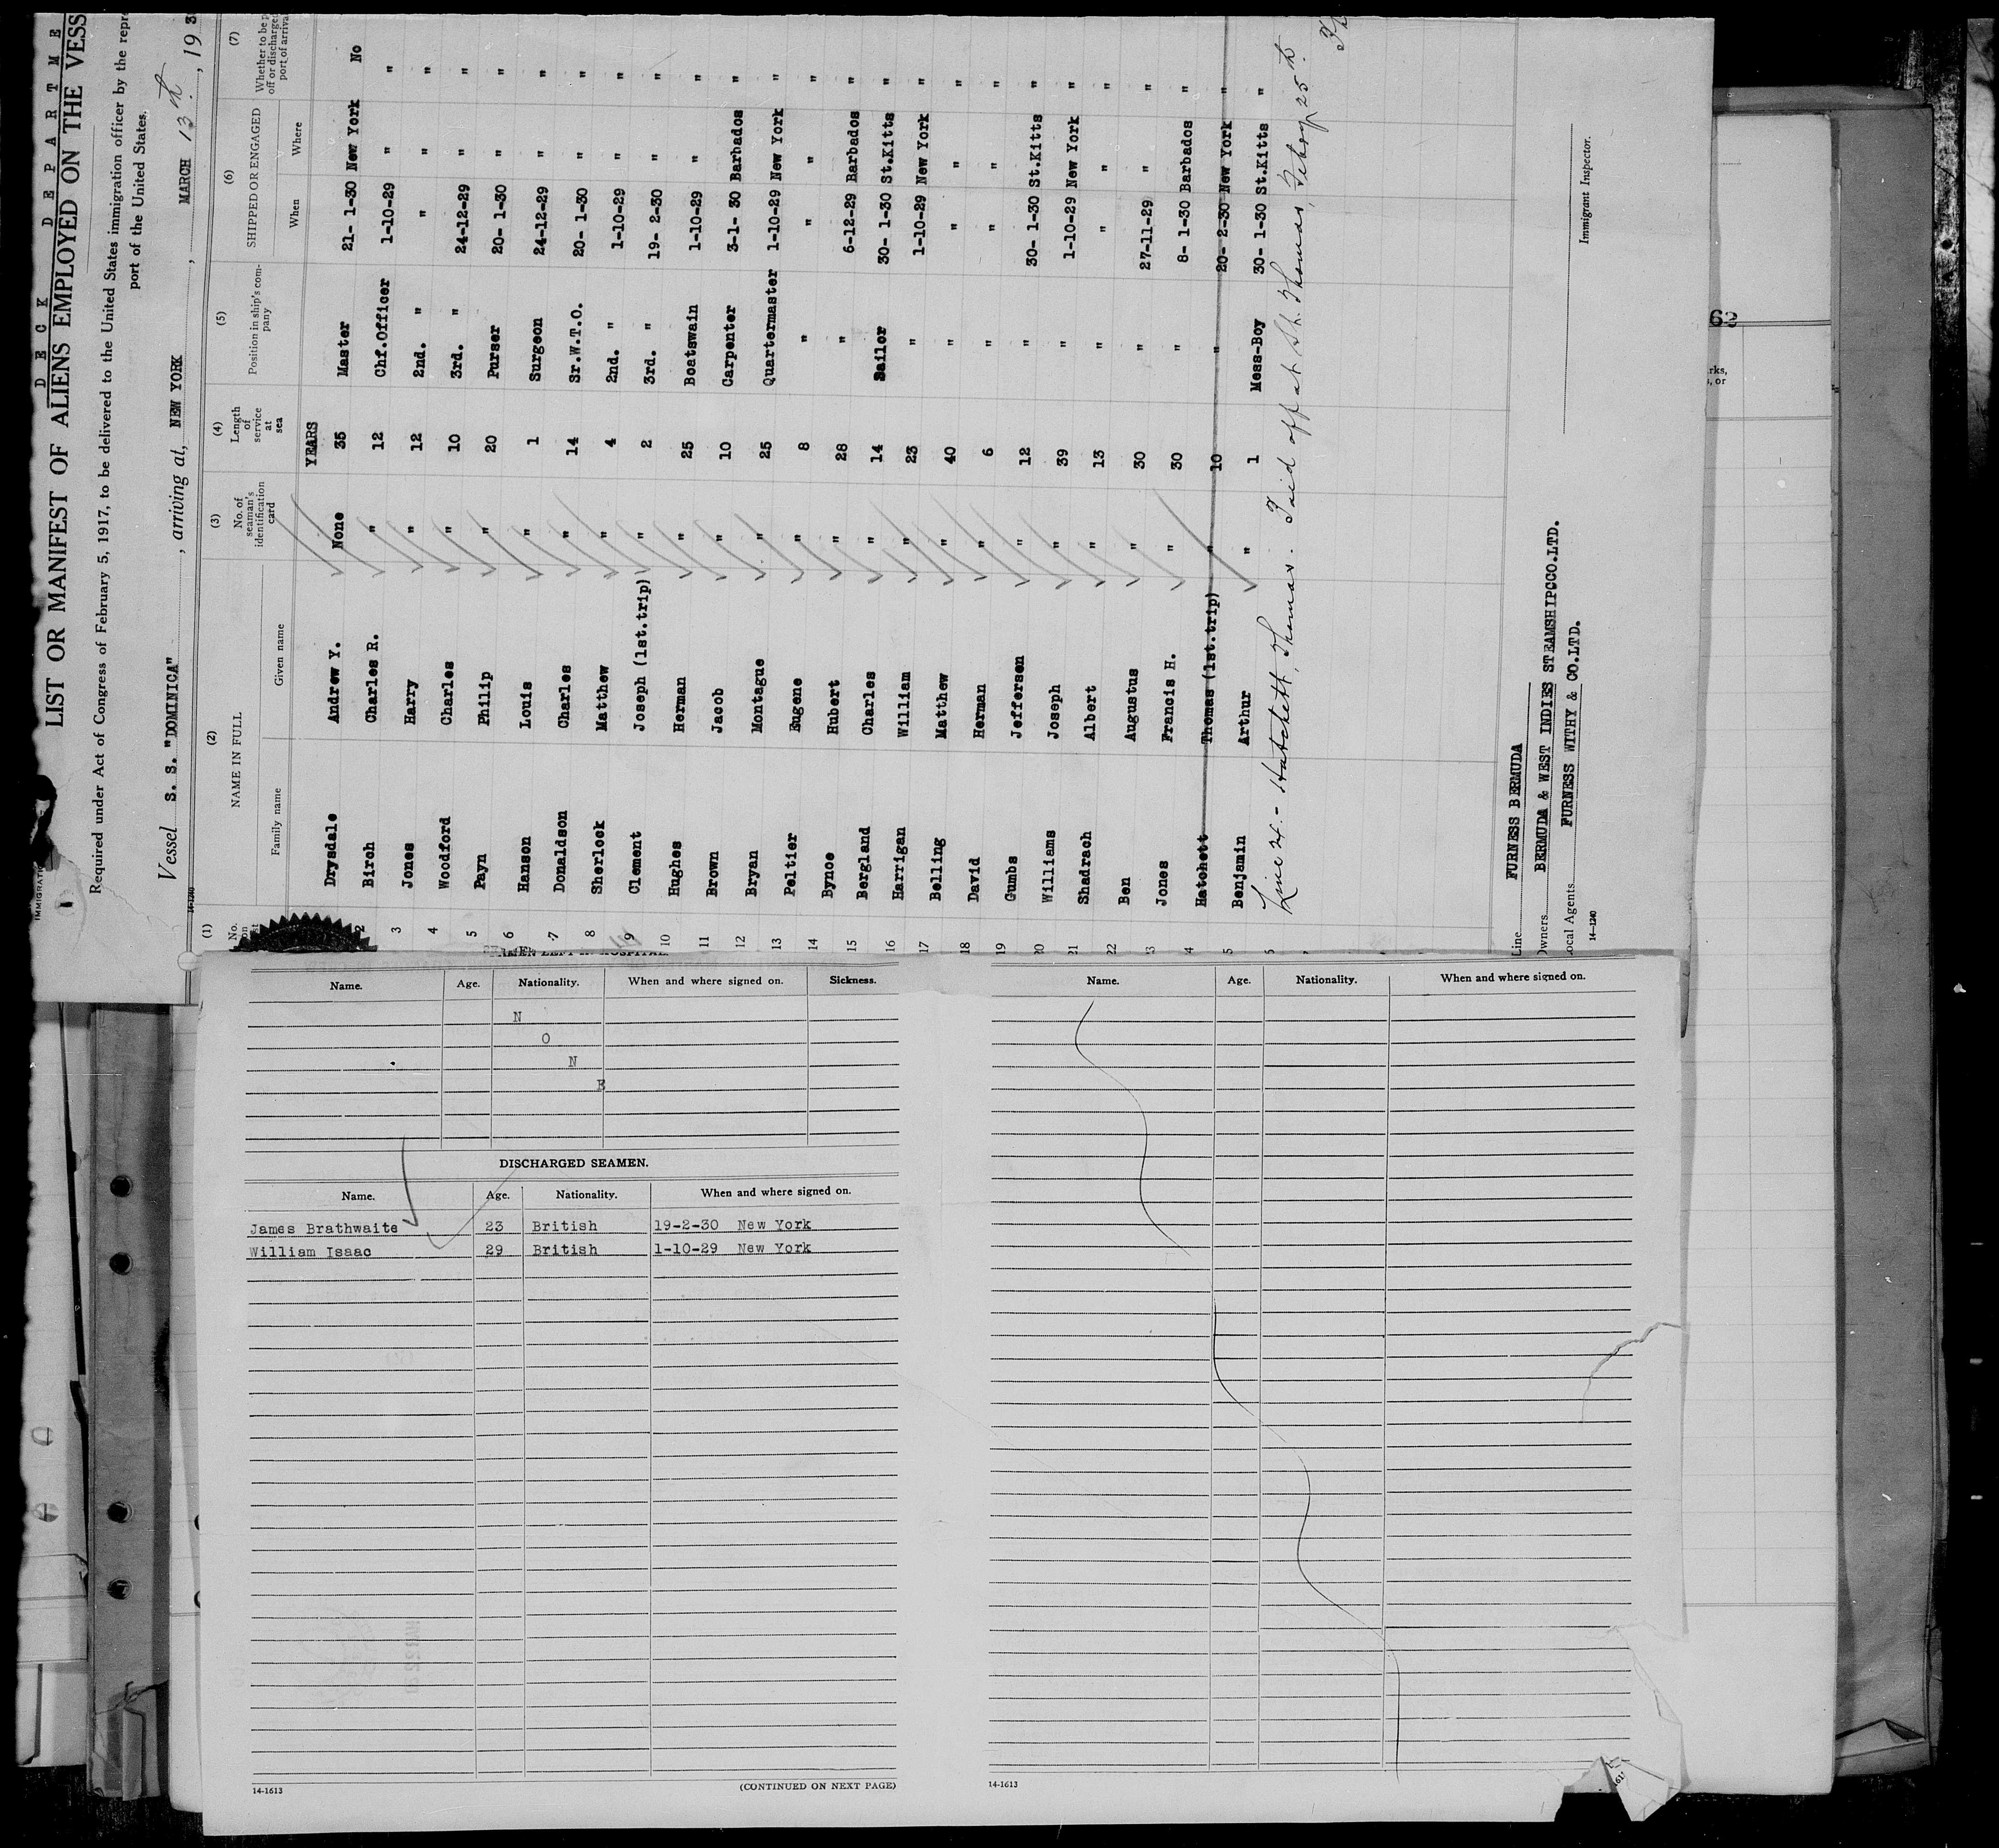 DECK DEPARTME
LIST OR MANIFEST OF ALIENS EMPLOYED ON THE VESS
Required under Act of Congress of February 5, 1917, to be delivered to the United States immigration officer by the repr
port of the United States.
Vessel S. S. "DOMINICA", arriving at, NEW YORK, MARCH 13th, 193
14-1240
(1) (2) (3) (4) (5) (6) (7)
No. on NAME IN FULL No. of seaman's identification card Length of service at sea Position in ship's company SHIPPED OR ENGAGED Whether to be p off or discharged port of arrival
Family name Given name When Where
YEARS
Drysdale Andrew Y. None 35 Master 21- 1-30 New York No
2 Birch Charles R. " 12 Chf.Officer 1-10-29 " "
3 Jones Harry " 12 2nd. " " " "
4 Woodford Charles " 10 3rd. " 24-12-29 " "
5 Payn Philip " 20 Purser 20- 1-30 " "
6 Hanson Louis " 1 Surgeon 24-12-29 " "
7 Donaldson Charles " 14 Sr.W.T.O. 20- 1-30 " "
8 Sherlock Matthew " 4 2nd. " 1-10-29 " "
9 Clement Joseph (1st.trip) " 2 3rd. " 19- 2-30 " "
10 Hughes Herman " 25 Boatswain 1-10-29 " "
11 Brown Jacob " 10 Carpenter 3-1- 30 Barbados "
12 Bryan Montague " 25 Quartermaster 1-10-29 New York "
13 Peltier Eugene " 8 " " " "
14 Bynoe Hubert " 28 " 6-12-29 Barbados "
15 Bergland Charles " 14 Sailor 30- 1-30 St.Kitts "
16 Harrigan William " 23 " 1-10-29 New York "
17 Belling Matthew " 40 " " " "
18 David Herman " 6 " " " "
19 Gumbs Jefferson " 12 " 30- 1-30 St.Kitts "
20 Williams Joseph " 39 " 1-10-29 New York "
21 Shadrach Albert " 13 " " " "
22 Ben Augustus " 30 " 27-11-29 " "
3 Jones Francis H. " 30 " 8- 1-30 Barbados "
4 Hatchett Thomas (1st.trip) " 10 " 20- 2-30 New York "
5 Benjamin Arthur " 1 Mess-Boy 30- 1-30 St.Kitts "
Line 24.- Hatchett, Thomas. Paid off at St. Thomas, Febry 25th.
Line FURNESS BERMUDA
Owners BERMUDA & WEST INDIES STEAMSHIPCCO.LTD.
ocal Agents FURNESS WITHY & CO.LTD.
Immigrant Inspector.
14-1240
Name. Age. Nationality. When and where signed on. Sickness.
N
O
N
E
DISCHARGED SEAMEN.
Name. Age. Nationality. When and where signed on.
James Brathwaite 23 British 19-2-30 New York
William Isaac 29 British 1-10-29 New York
14-1613 (CONTINUED ON NEXT PAGE)
Name. Age. Nationality. When and where signed on.
14-1613
63
rks,
, or